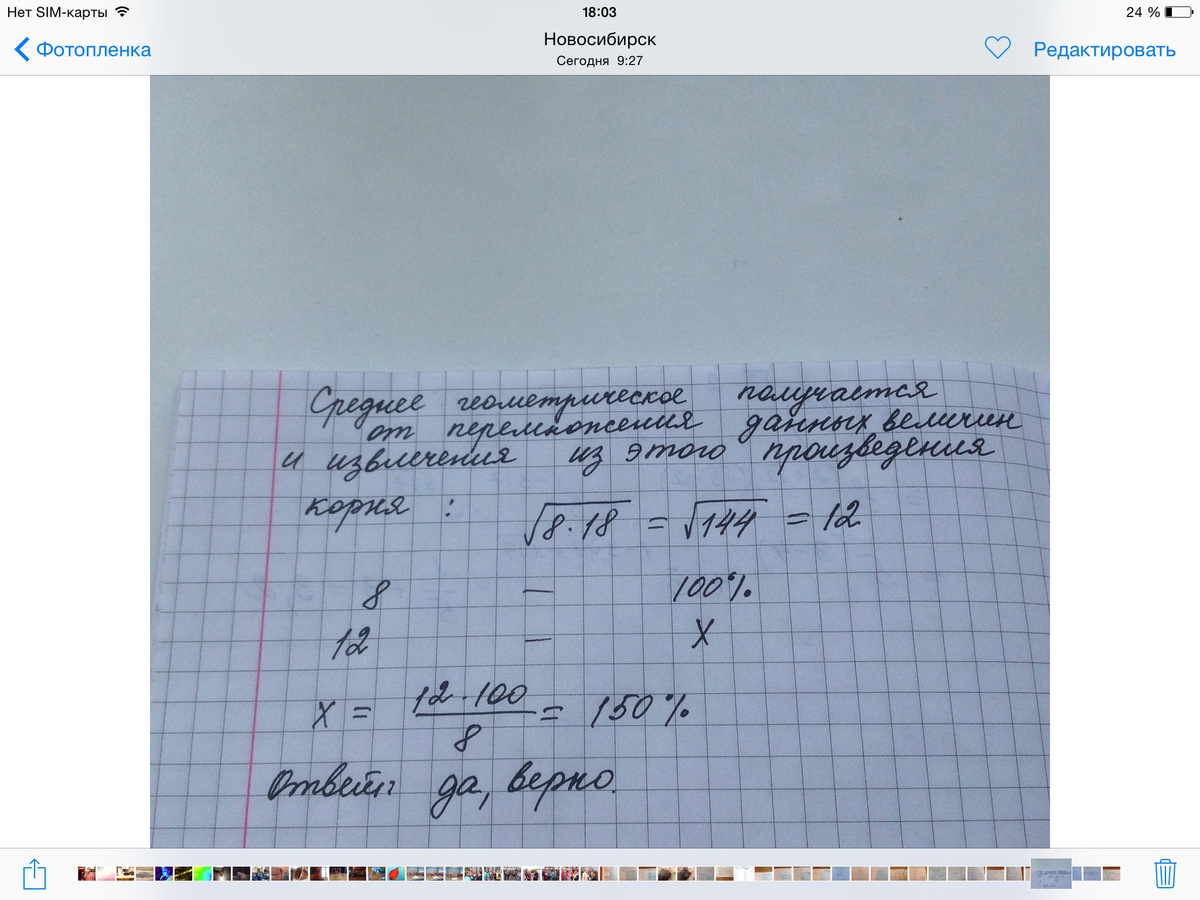 Нет SIM-карты
18:03
24 %
Фотопленка
Новосибирск
Сегодня 9:27
Редактировать
Среднее геометрическое получается
от перемножения данных величин
и извлечения из этого произведения
корня : √8·18 = √144 = 12
8 — 100%
12 — X
X = 12·100/8 = 150%
Ответ: да, верно.